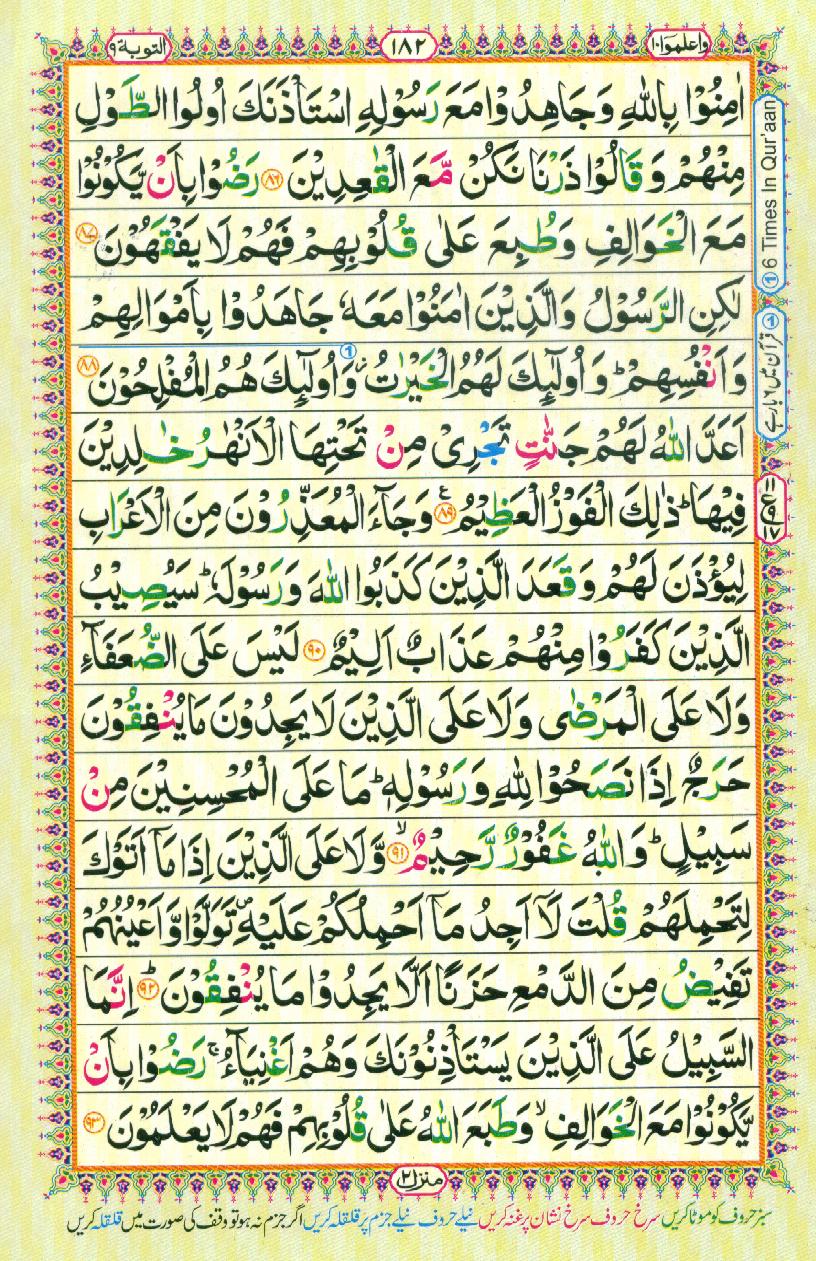 التوبة ٩
١٨٢
واعلموا ١٠
اٰمِنُوْا بِاللّٰهِ وَجَاهِدُوْا مَعَ رَسُوْلِهِ اسْتَاْذَنَكَ اُولُوا الطَّوْلِ
مِنْهُمْ وَ قَالُوْا ذَرْنَا نَكُنْ مَّعَ الْقٰعِدِيْنَ ﴿٨٦﴾ رَضُوْا بِاَنْ يَّكُوْنُوْا
مَعَ الْخَوَالِفِ وَطُبِعَ عَلٰى قُلُوْبِهِمْ فَهُمْ لَا يَفْقَهُوْنَ ﴿٨٧﴾
لٰكِنِ الرَّسُوْلُ وَالَّذِيْنَ اٰمَنُوْا مَعَهٗ جَاهَدُوْا بِاَمْوَالِهِمْ
وَاَنْفُسِهِمْ ؕ وَ اُولٰٓئِكَ لَهُمُ الْخَيْرٰتُ ز وَاُولٰٓئِكَ هُمُ الْمُفْلِحُوْنَ ﴿٨٨﴾
اَعَدَّ اللّٰهُ لَهُمْ جَنّٰتٍ تَجْرِىْ مِنْ تَحْتِهَا الْاَنْهٰرُ خٰلِدِيْنَ
فِيْهَا ؕ ذٰلِكَ الْفَوْزُ الْعَظِيْمُ ﴿٨٩﴾ ع وَجَآءَ الْمُعَذِّرُوْنَ مِنَ الْاَعْرَابِ
لِيُؤْذَنَ لَهُمْ وَ قَعَدَ الَّذِيْنَ كَذَبُوا اللّٰهَ وَرَسُوْلَهٗ ؕ سَيُصِيْبُ
الَّذِيْنَ كَفَرُوْا مِنْهُمْ عَذَابٌ اَلِيْمٌ ﴿٩٠﴾ لَيْسَ عَلَى الضُّعَفَآءِ
وَلَا عَلَى الْمَرْضٰى وَلَا عَلَى الَّذِيْنَ لَا يَجِدُوْنَ مَا يُنْفِقُوْنَ
حَرَجٌ اِذَا نَصَحُوْا لِلّٰهِ وَرَسُوْلِهٖ ؕ مَا عَلَى الْمُحْسِنِيْنَ مِنْ
سَبِيْلٍ ؕ وَاللّٰهُ غَفُوْرٌ رَّحِيْمٌ ۙ﴿٩١﴾ وَّلَا عَلَى الَّذِيْنَ اِذَا مَاۤ اَتَوْكَ
لِتَحْمِلَهُمْ قُلْتَ لَاۤ اَجِدُ مَاۤ اَحْمِلُكُمْ عَلَيْهِ ۪ تَوَلَّوْا وَّاَعْيُنُهُمْ
تَفِيْضُ مِنَ الدَّمْعِ حَزَنًا اَلَّا يَجِدُوْا مَا يُنْفِقُوْنَ ؕ﴿٩٢﴾ اِنَّمَا
السَّبِيْلُ عَلَى الَّذِيْنَ يَسْتَاْذِنُوْنَكَ وَهُمْ اَغْنِيَآءُ ۚ رَضُوْا بِاَنْ
يَّكُوْنُوْا مَعَ الْخَوَالِفِ ۙ وَطَبَعَ اللّٰهُ عَلٰى قُلُوْبِهِمْ فَهُمْ لَا يَعْلَمُوْنَ ﴿٩٣﴾
① 6 Times In Qur'aan
① قرآن میں ۶ بار ہے
ع
منزل ٢
سبز حروف کو موٹا کریں سرخ حروف سرخ نشان پر غنہ کریں نیلے حروف نیلے جزم پر قلقلہ کریں اگر جزم نہ ہو تو وقف کی صورت میں قلقلہ کریں